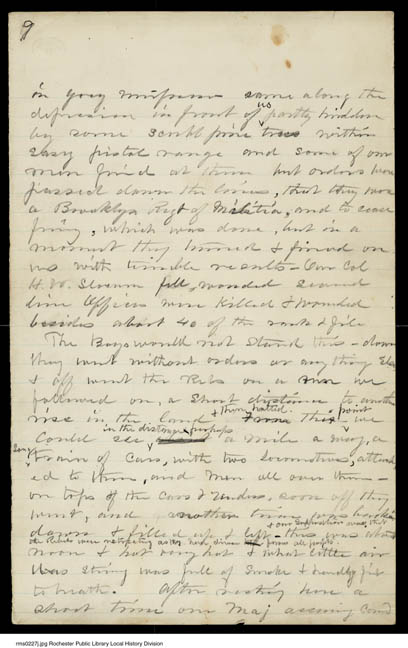 9
in grey uniforms came along the
depression in front of us partly hidden
by some scrub pine trees within
easy pistol range and some of our
men fired at them but orders were
passed down the lines, that they were
a Brooklyn Regt of Militia, and to cease
firing, which was done, but in a
moment they turned & fired on
us with terrible results - Our Col
H. W. Slocum fell, wounded several
line Officers were Killed & wounded
besides about 40 of the rank & file
The Boys would not stand this - down
they went without orders or any thing Else
& off went the Rebs on a run we
followed on, a short distance to another
rise in the land & then halted. From this point we
could see in the distance perhaps a mile away, a
train of Cars, with two locomotives, attach
ed to them, and men all over them -
on tops of the Cars & Tenders, soon off they
went, and another train was backed
down & filled up & left - this was about
& our supposition was that
the Rebels were retreating as we had driven from all points
noon & hot very hot & what little air
was stiring was full of Smoke & hardly fit
to breath. After resting here a
short time our Maj assuming Comd
rms0227j.jpg Rochester Public Library Local History Division